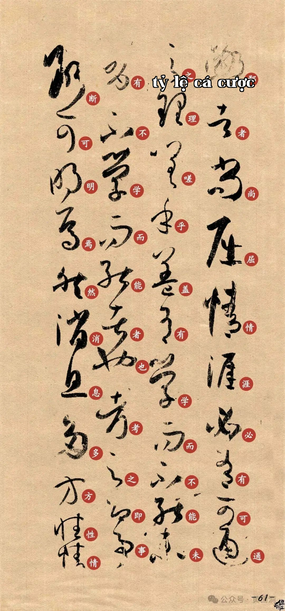 tỷ lệ cá cược
者尚屈情涯必有可通
之理嗟乎盖有学而不能未
有不学而能者也考之即事
断可明焉然消息多方性情
公众号
-61-